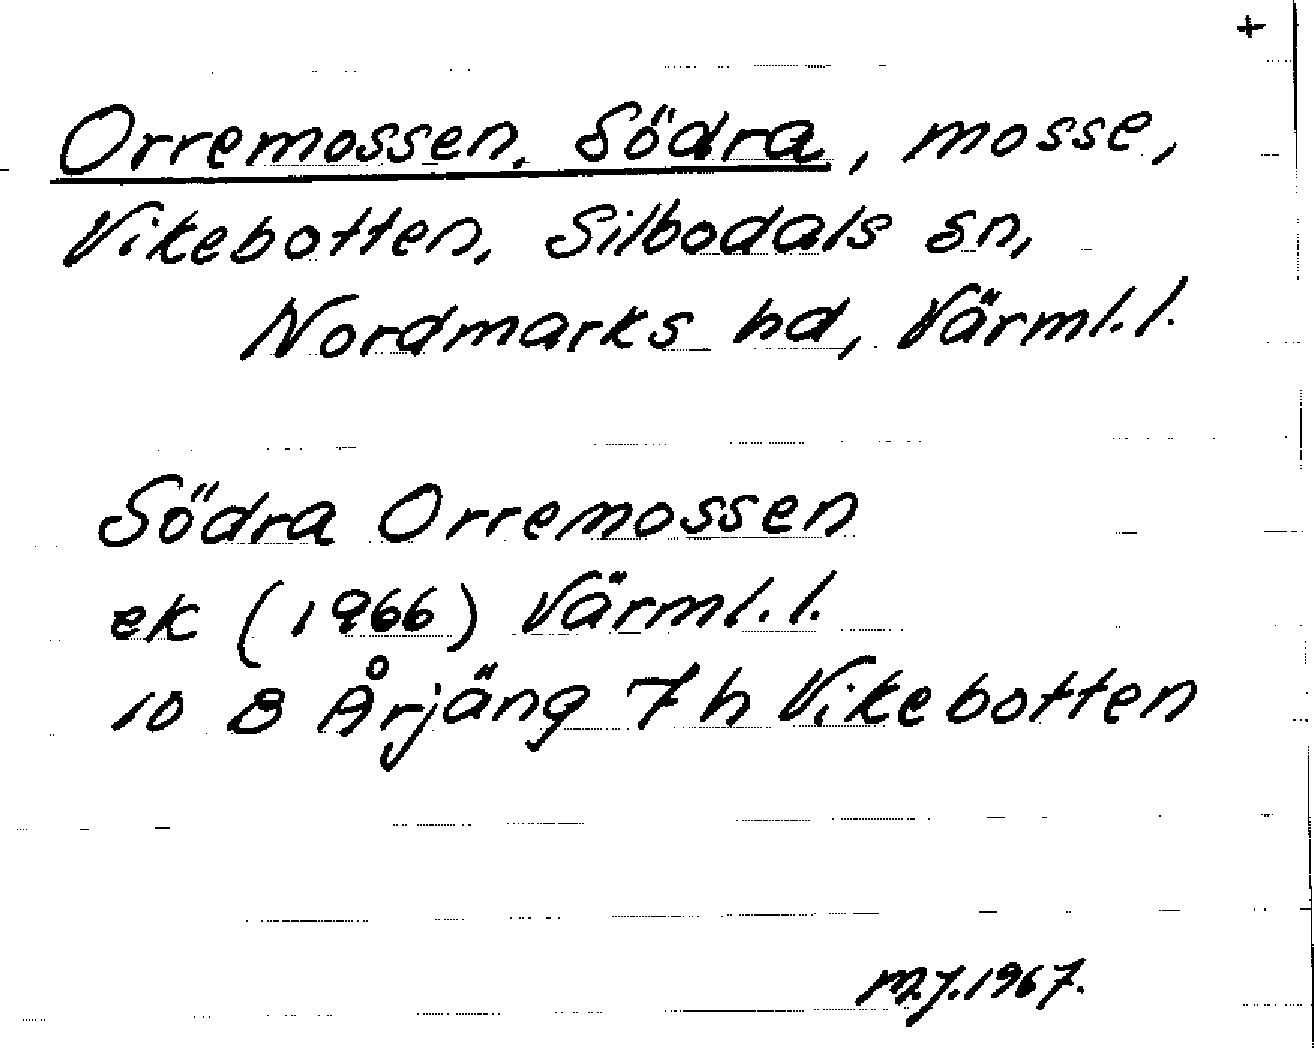 +
Orremossen, Södra, mosse,
Vikebotten, Silbodals sn,
Nordmarks hd, Värml. l.
Södra Orremossen
ek (1966) Värml. l.
10 B Årjäng 7 h Vikebotten
M.J. 1967.